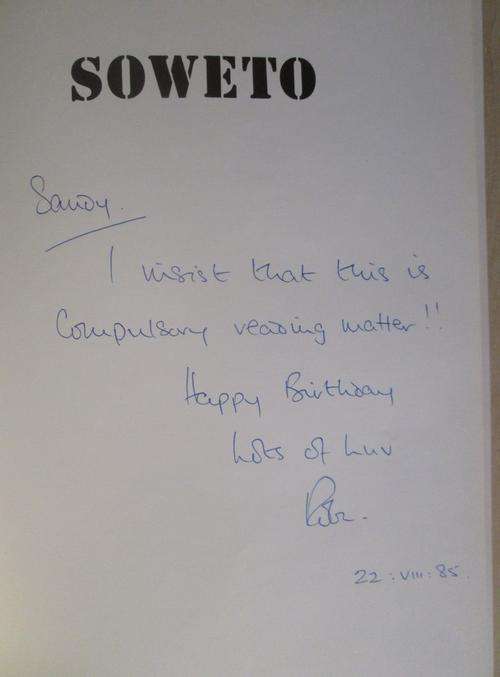 SOWETO
Sandy.
I insist that this is
Compulsory reading matter!!
Happy Birthday
Lots of Luv
22:VIII:85.